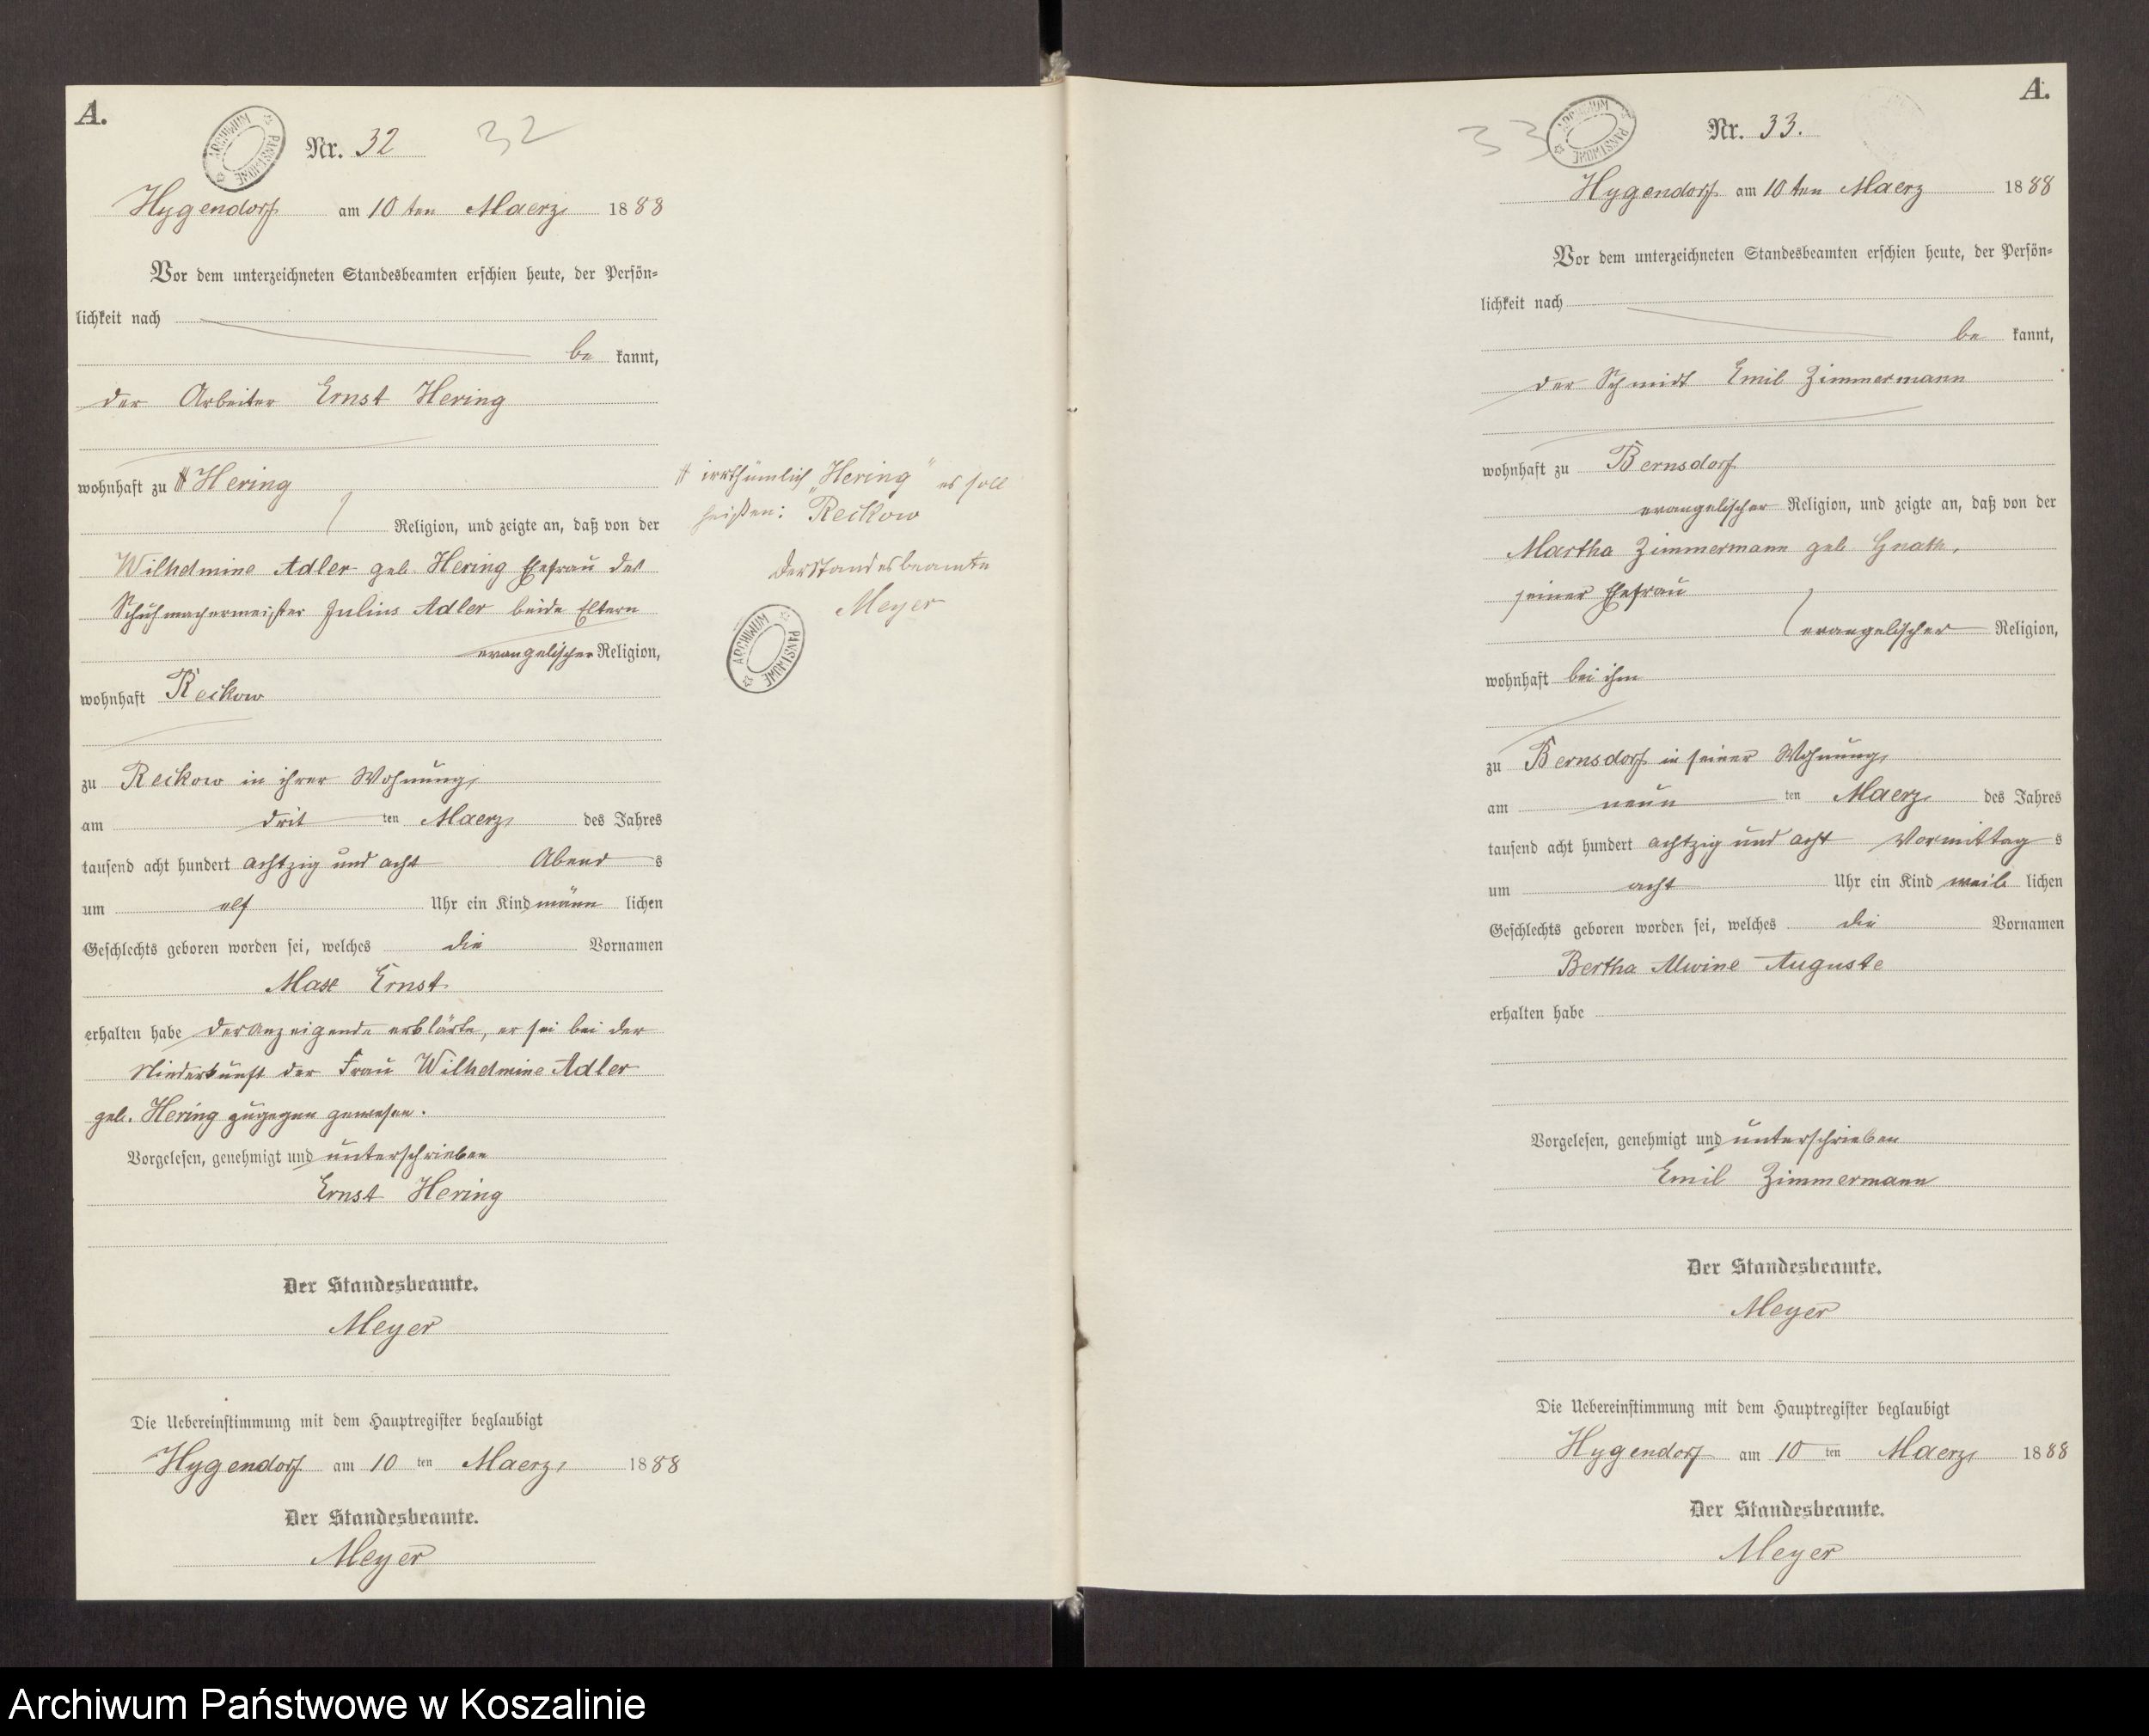 A.
ARCHIWUM PAŃSTWOWE
Nr. 32
32
Hygendorf am 10 ten Maerz 1888
Vor dem unterzeichneten Standesbeamten erschien heute, der Persön-
lichkeit nach
be kannt,
der Arbeiter Ernst Hering
wohnhaft zu # Hering
Religion, und zeigte an, daß von der
Wilhelmine Adler geb. Hering Ehefrau des
Schuhmachermeister Julius Adler beide Eltern
evangelischer Religion,
wohnhaft Reckow
zu Reckow in ihrer Wohnung,
am drit ten Maerz des Jahres
tausend acht hundert achtzig und acht Abend s
um elf Uhr ein Kind männ lichen
Geschlechts geboren worden sei, welches die Vornamen
Max Ernst
erhalten habe der Anzeigende erklärte, er sei bei der
Niederkunft der Frau Wilhelmine Adler
geb. Hering zugegen gewesen.
Vorgelesen, genehmigt und unterschrieben
Ernst Hering
Der Standesbeamte.
Meyer
Die Uebereinstimmung mit dem Hauptregister beglaubigt
Hygendorf am 10 ten Maerz 1888
Der Standesbeamte.
Meyer
# irrthümlich "Hering" es soll
heißen: Reckow
Der Standesbeamte
Meyer
ARCHIWUM PAŃSTWOWE
A.
33
ARCHIWUM PAŃSTWOWE
Nr. 33.
Hygendorf am 10 ten Maerz 1888
Vor dem unterzeichneten Standesbeamten erschien heute, der Persön-
lichkeit nach
be kannt,
der Schmidt Emil Zimmermann
wohnhaft zu Bernsdorf
evangelischer Religion, und zeigte an, daß von der
Martha Zimmermann geb. Gnath,
seiner Ehefrau
evangelischer Religion,
wohnhaft bei ihm
zu Bernsdorf in seiner Wohnung,
am neun ten Maerz des Jahres
tausend acht hundert achtzig und acht Vormittag s
um acht Uhr ein Kind weib lichen
Geschlechts geboren worden sei, welches die Vornamen
Bertha Alwine Auguste
erhalten habe
Vorgelesen, genehmigt und unterschrieben
Emil Zimmermann
Der Standesbeamte.
Meyer
Die Uebereinstimmung mit dem Hauptregister beglaubigt
Hygendorf am 10 ten Maerz 1888
Der Standesbeamte.
Meyer
Archiwum Państwowe w Koszalinie